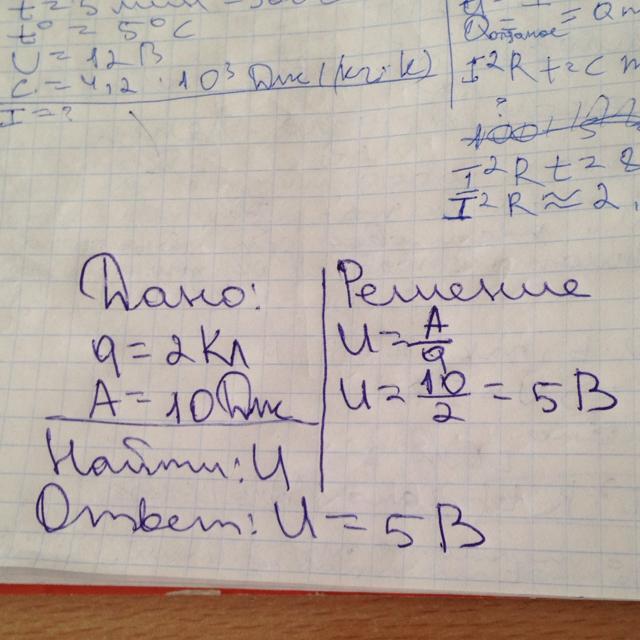 t° = 5°C
U = 12 В
C = 4,2 · 10³ Дж/(кг·К)
I = ?
I²R t = c m
I²R t =
I²R ≈ 2
Дано:
q = 2 Кл
A = 10 Дж
Найти: U
Решение
U = A/q
U = 10/2 = 5 В
Ответ: U = 5 В